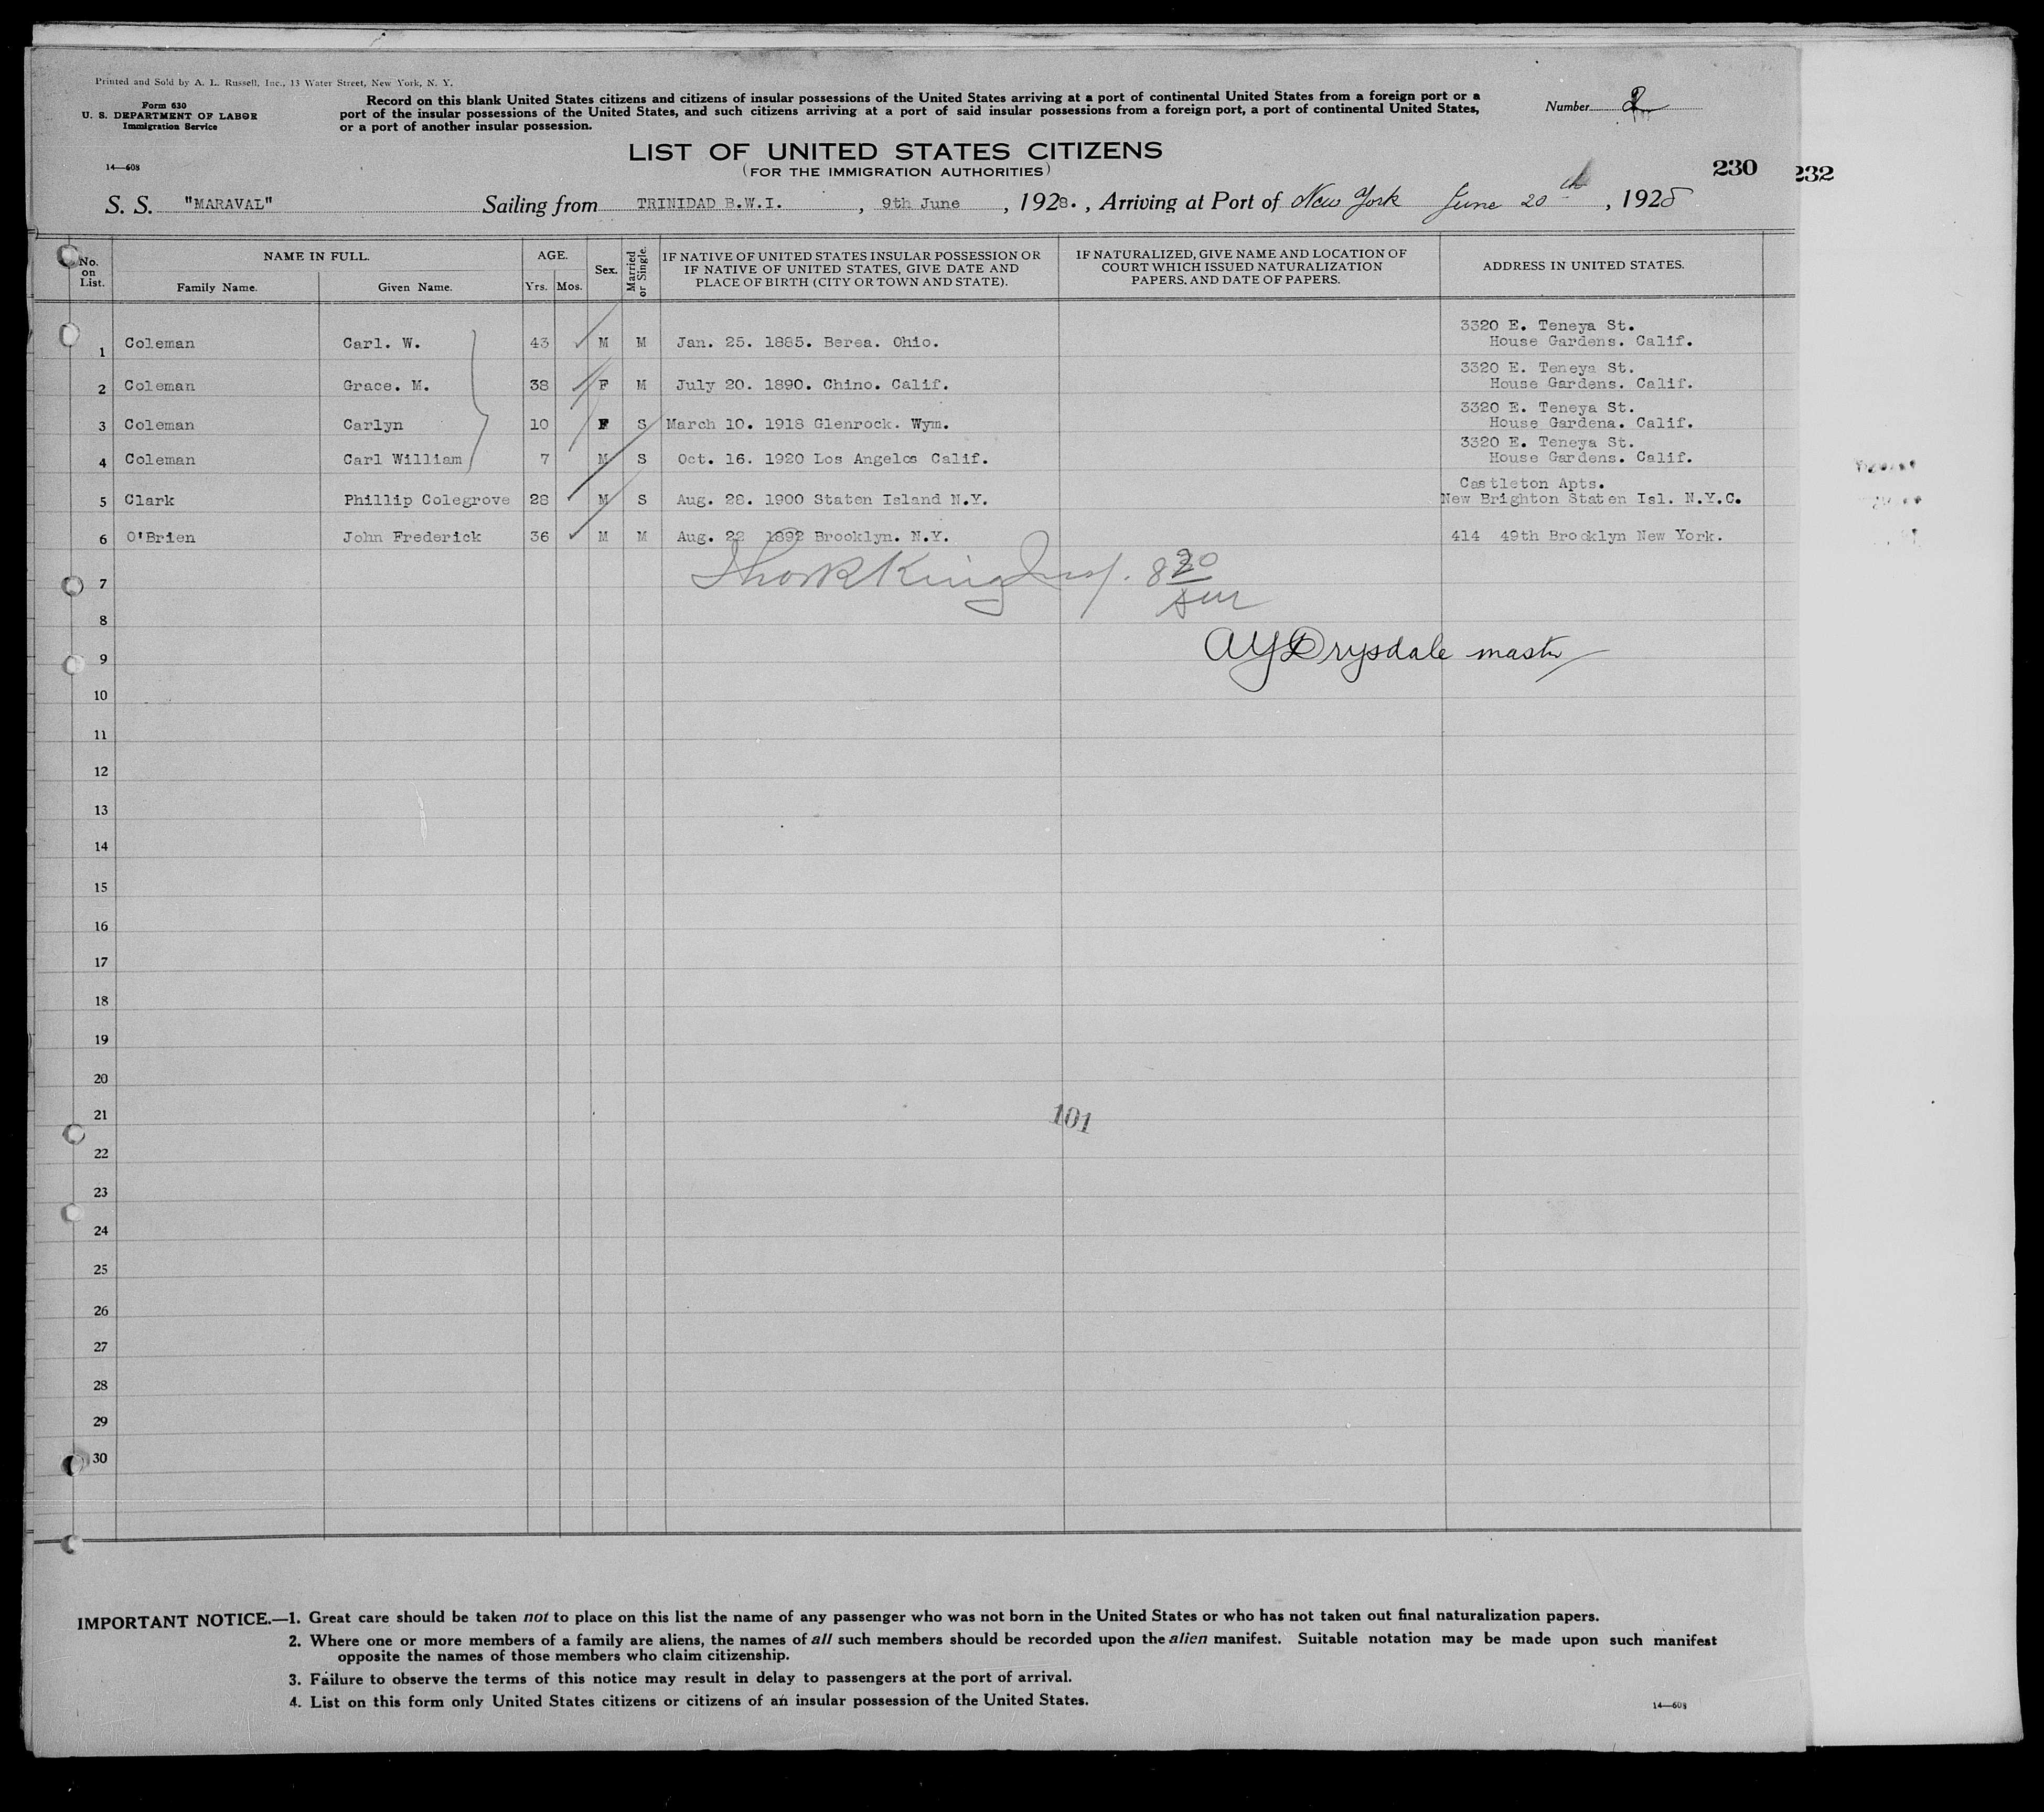 Printed and Sold by A. L. Russell, Inc., 13 Water Street, New York, N. Y.
Form 630
U. S. DEPARTMENT OF LABOR
Immigration Service
Record on this blank United States citizens and citizens of insular possessions of the United States arriving at a port of continental United States from a foreign port or a
port of the insular possessions of the United States, and such citizens arriving at a port of said insular possessions from a foreign port, a port of continental United States,
or a port of another insular possession.
Number 2
14—608
LIST OF UNITED STATES CITIZENS
(FOR THE IMMIGRATION AUTHORITIES)
230 232
S. S. "MARAVAL" Sailing from TRINIDAD B.W.I. , 9th June , 1928. , Arriving at Port of New York June 20th , 1928
No. on List. NAME IN FULL. AGE. Sex. Married or Single. IF NATIVE OF UNITED STATES INSULAR POSSESSION OR IF NATIVE OF UNITED STATES, GIVE DATE AND PLACE OF BIRTH (CITY OR TOWN AND STATE). IF NATURALIZED, GIVE NAME AND LOCATION OF COURT WHICH ISSUED NATURALIZATION PAPERS, AND DATE OF PAPERS. ADDRESS IN UNITED STATES.
Family Name. Given Name. Yrs. Mos.
1 Coleman Carl. W. 43 M M Jan. 25. 1885. Berea. Ohio. 3320 E. Teneya St.
House Gardens. Calif.
2 Coleman Grace. M. 38 F M July 20. 1890. Chino. Calif. 3320 E. Teneya St.
House Gardens. Calif.
3 Coleman Carlyn 10 F S March 10. 1918 Glenrock. Wym. 3320 E. Teneya St.
House Gardena. Calif.
4 Coleman Carl William 7 M S Oct. 16. 1920 Los Angelos Calif. 3320 E. Teneya St.
House Gardens. Calif.
5 Clark Phillip Colegrove 28 M S Aug. 28. 1900 Staten Island N.Y. Castleton Apts.
New Brighton Staten Isl. N.Y.C.
6 O'Brien John Frederick 36 M M Aug. 22 1892 Brooklyn. N.Y. 414 49th Brooklyn New York.
7 King Insp. 8 20
8
9 AY Drysdale master
10
11
12
13
14
15
16
17
18
19
20
21 101
22
23
24
25
26
27
28
29
30
IMPORTANT NOTICE.—1. Great care should be taken not to place on this list the name of any passenger who was not born in the United States or who has not taken out final naturalization papers.
2. Where one or more members of a family are aliens, the names of all such members should be recorded upon the alien manifest. Suitable notation may be made upon such manifest
opposite the names of those members who claim citizenship.
3. Failure to observe the terms of this notice may result in delay to passengers at the port of arrival.
4. List on this form only United States citizens or citizens of an insular possession of the United States.
14—608